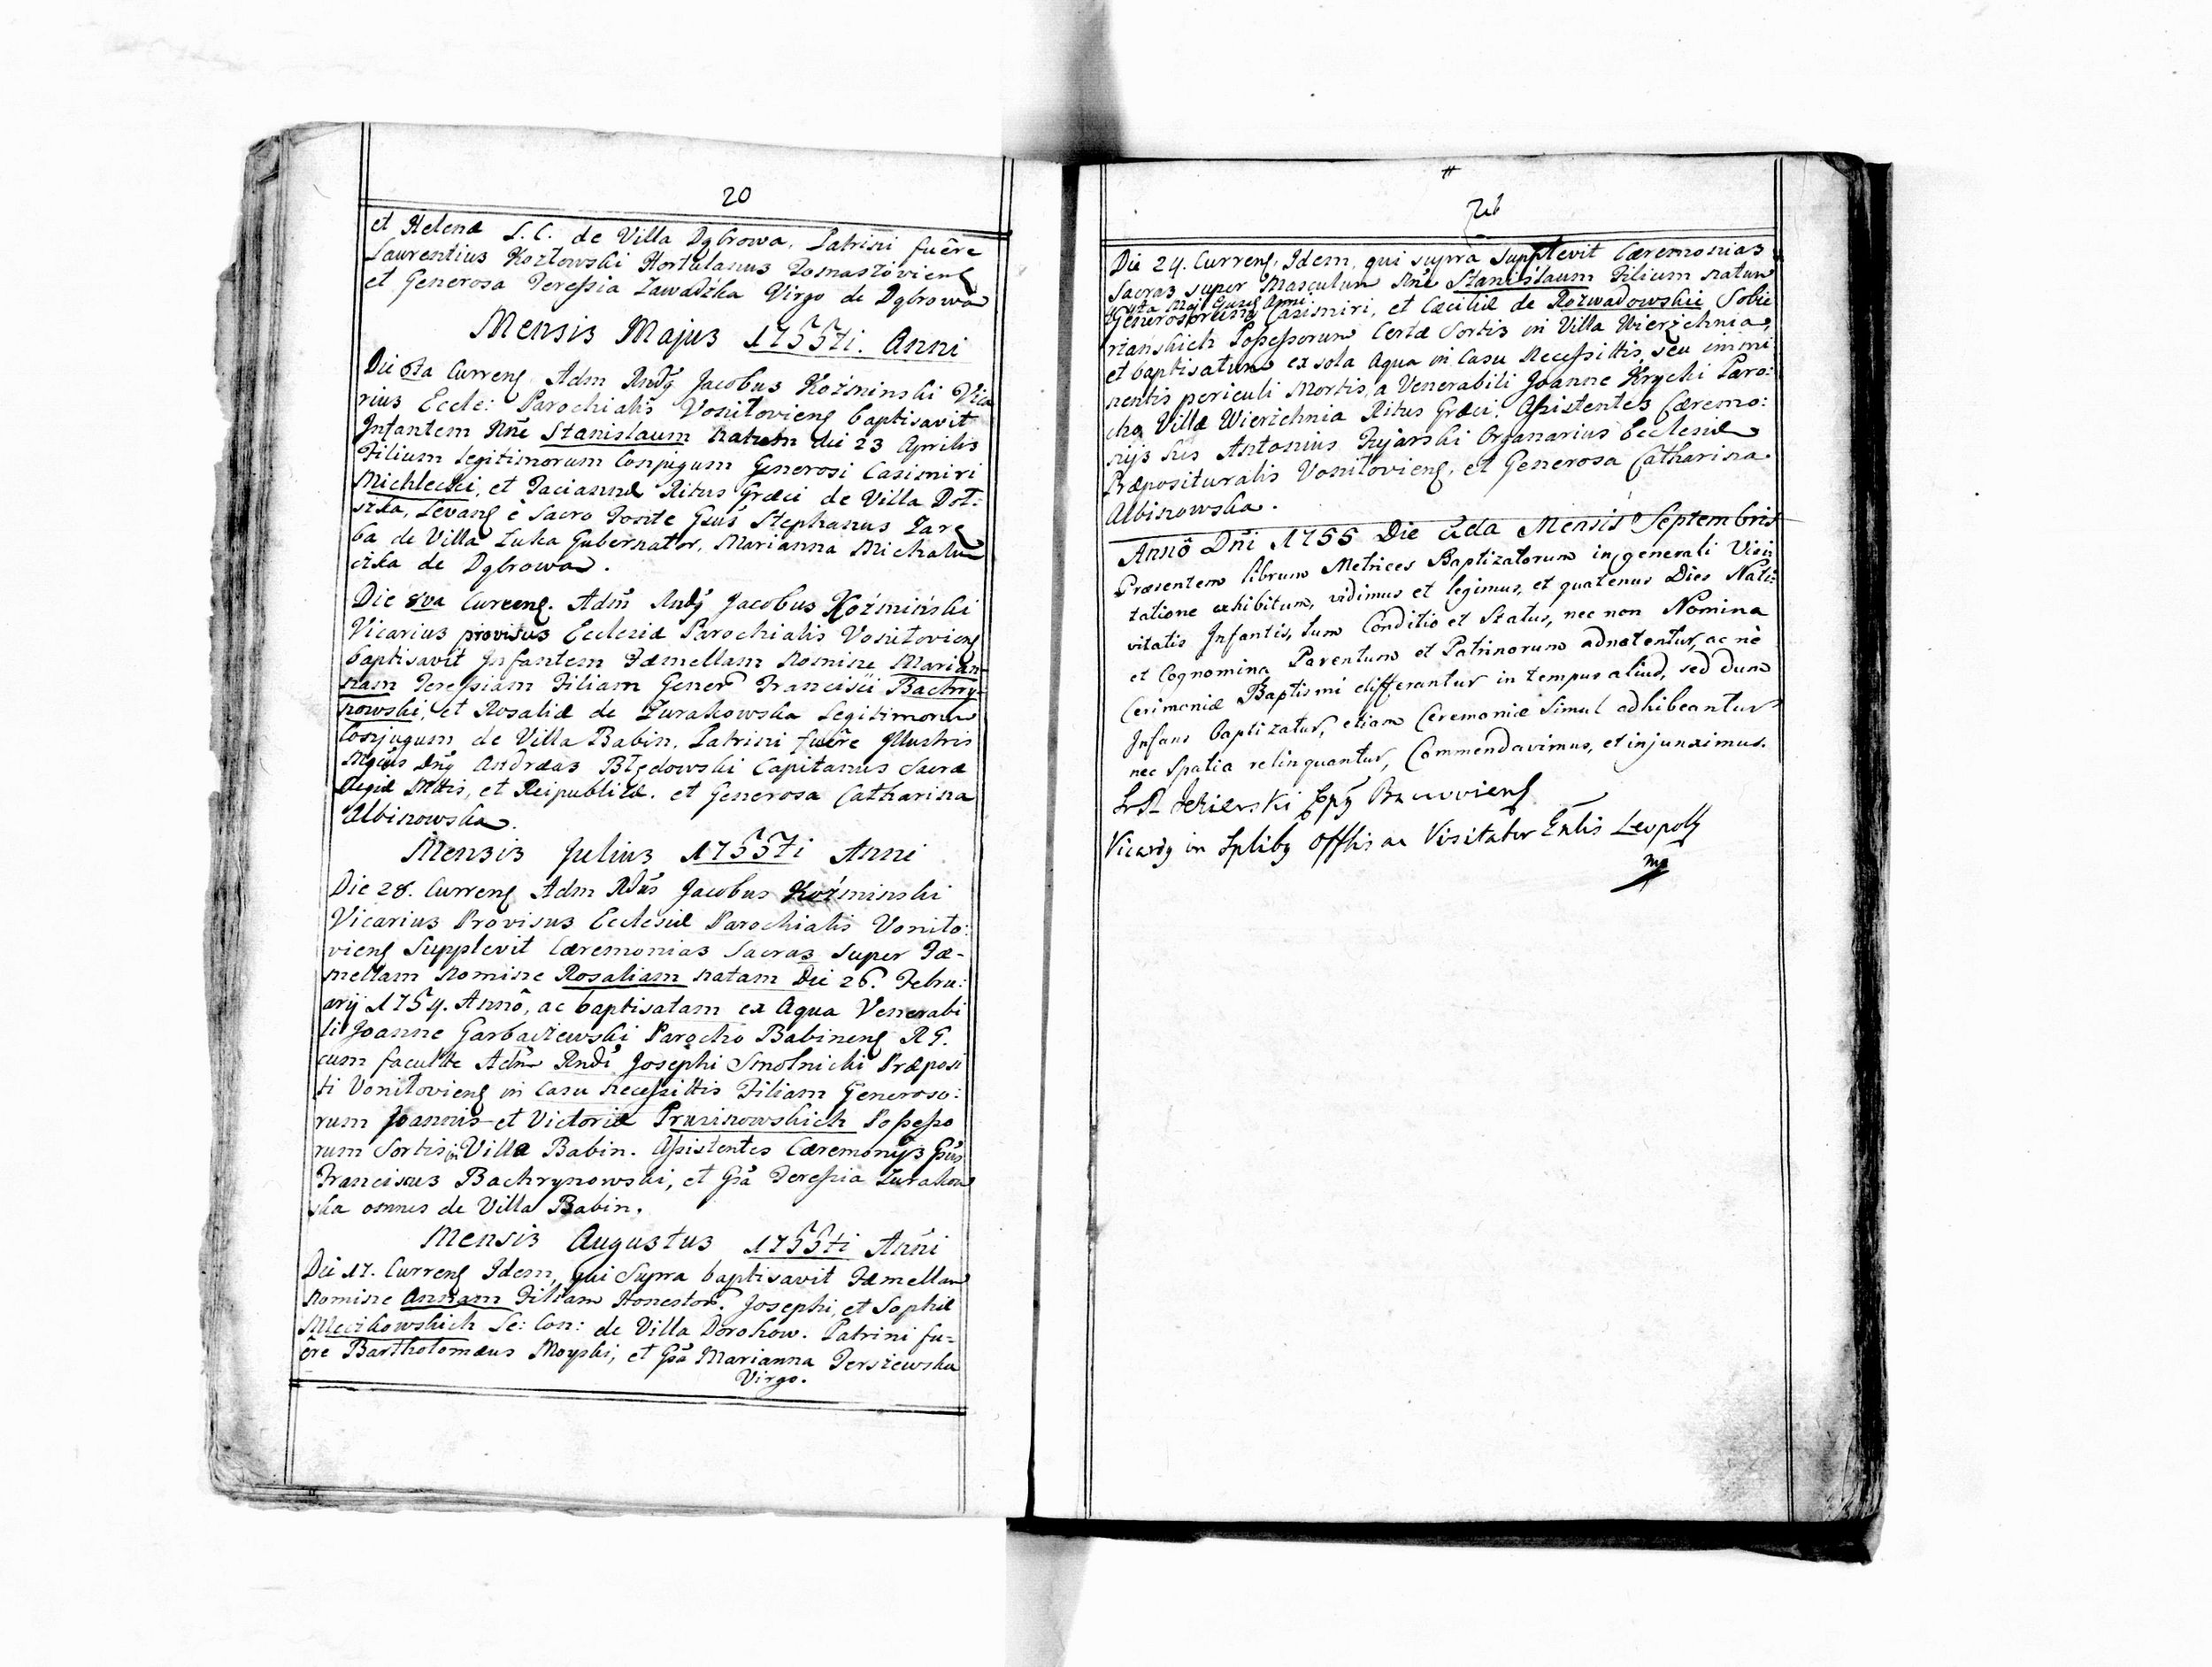 20
et Helenæ L. C. de Villa Dąbrowa. Patrini fuêre
Laurentius Kozłowski Hortulanus Tomaszóvienſ
et Generosa Tereſsia Zawadzka Virgo de Dąbrowa
Mensis Majus 1755ti. Anni
Die Currenſ Adm Rndꝯ Jacobus Koźminski Vica
rius Eccle: Parochialis Vonitovienſ baptisavit
Infantem Nnē Stanislaum natum die 23 Aprilis
Filium Legitimorum Conjugum Generosi Casimiri
Michlecki, et Taciannæ Ritus Græci de Villa Doł=
szka, Levanſ è Sacro Fonte Gsūs Stephanus Zarę
ba de Villa Łuka Gubernator, Marianna Michalu
czka de Dąbrowa.
Die 8va Currenſ. Adm Rndꝯ Jacobus Koźmiński
Vicarius provisus Ecclesiæ Parochialis Vonitovienſ
baptisavit Infantem Fæmellam Nomine Marian-
nam Tereſsiam Filiam Gener Francisci Bachry-
nowski, et Rosaliæ de Żurakowska Legitimorum
Conjugum de Villa Babin. Patrini fuêre Illustris
Mgcus Dnꝯ Andreas Błędowski Capitanus Sacræ
Regiæ Mttis, et Reipublicæ. et Generosa Catharina
Albinowska.
Mensis Julius 1755ti Anni
Die 28. Currenſ Adm Rdūs Jacobus Koźminski
Vicarius Provisus Ecclesiæ Parochialis Vonito:
vienſ Supplevit Cæremonias Sacras super Fæ-
mellam Nomine Rosaliam natam Die 26. Febru:
arij 1754. Annô, ac baptisatam ex Aqua Venerabi
li Joanne Garbaczewski Parocho Babinenſ R G.
cum facultte Adm Rndi Josephi Smolnicki Præposi
ti Vonitovienſ in Casu Neceſsittis Filiam Generoso:
rum Joannis et Victoriæ Pruzinowskich Poſseſso
rum Sortis in Villa Babin. Aſsistentes Cæremonijs Gsūs
Franciscus Bachrynowski, et Gsā Tereſsia Żurakow
ska omnes de Villa Babin.
Mensis Augustus 1755ti Anni
Die 17. Currenſ Idem, qui Supra baptisavit Fæmellam
Nomine Annam Filiam Honestor. Josephi, et Sophiæ
Mecikowskich Le: Con: de Villa Dorohow. Patrini fu=
êre Bartholomæus Moyski, et Gsā Marianna Terszewska
Virgo.
Die 24. Currenſ, Idem, qui supra Supplevit Cæremonias
Sacras super Masculum Nnē Stanislaum Filium natum
Generosorum Casimiri, et Cæciliæ de Rozwadowskie Sobie
rianskich Poſseſsorum Certæ Sortis in Villa Wierzchnia,
et baptisatum ex sola Aqua in Casu Neceſsittis, seu immi
nentis periculi Mortis, a Venerabili Joanne Krycki Paro:
cho Villæ Wierzchnia Ritus Græci. Aſsistentes Cæremo:
nijs his Antonius Kujarski Organarius Ecclesiæ
Præposituralis Vonitovienſ, et Generosa Catharina
Albinowska.
Annô Dn̄i 1755 Die Mensis Septembris
Præsentem librum Metrices Baptizatorum in generali Visi
tatione exhibitum, vidimus et legimus, et quatenus Dies Nati=
vitatis Infantis, tum Conditio et Status, nec non Nomina
et Cognomina Parentum et Patrinorum adnotentur, ac nè
Cerimoniæ Baptismi differantur in tempus aliud, sed dum
Infans baptizatur, etiam Ceremoniæ simul adhibeantur
nec spatia relinquantur, Commendavimus, et injunximus.
Eppꝯ
Vicarꝯ in Splibꝯ Offlis ac Visitator Gnlis Leopolꝯ
mp